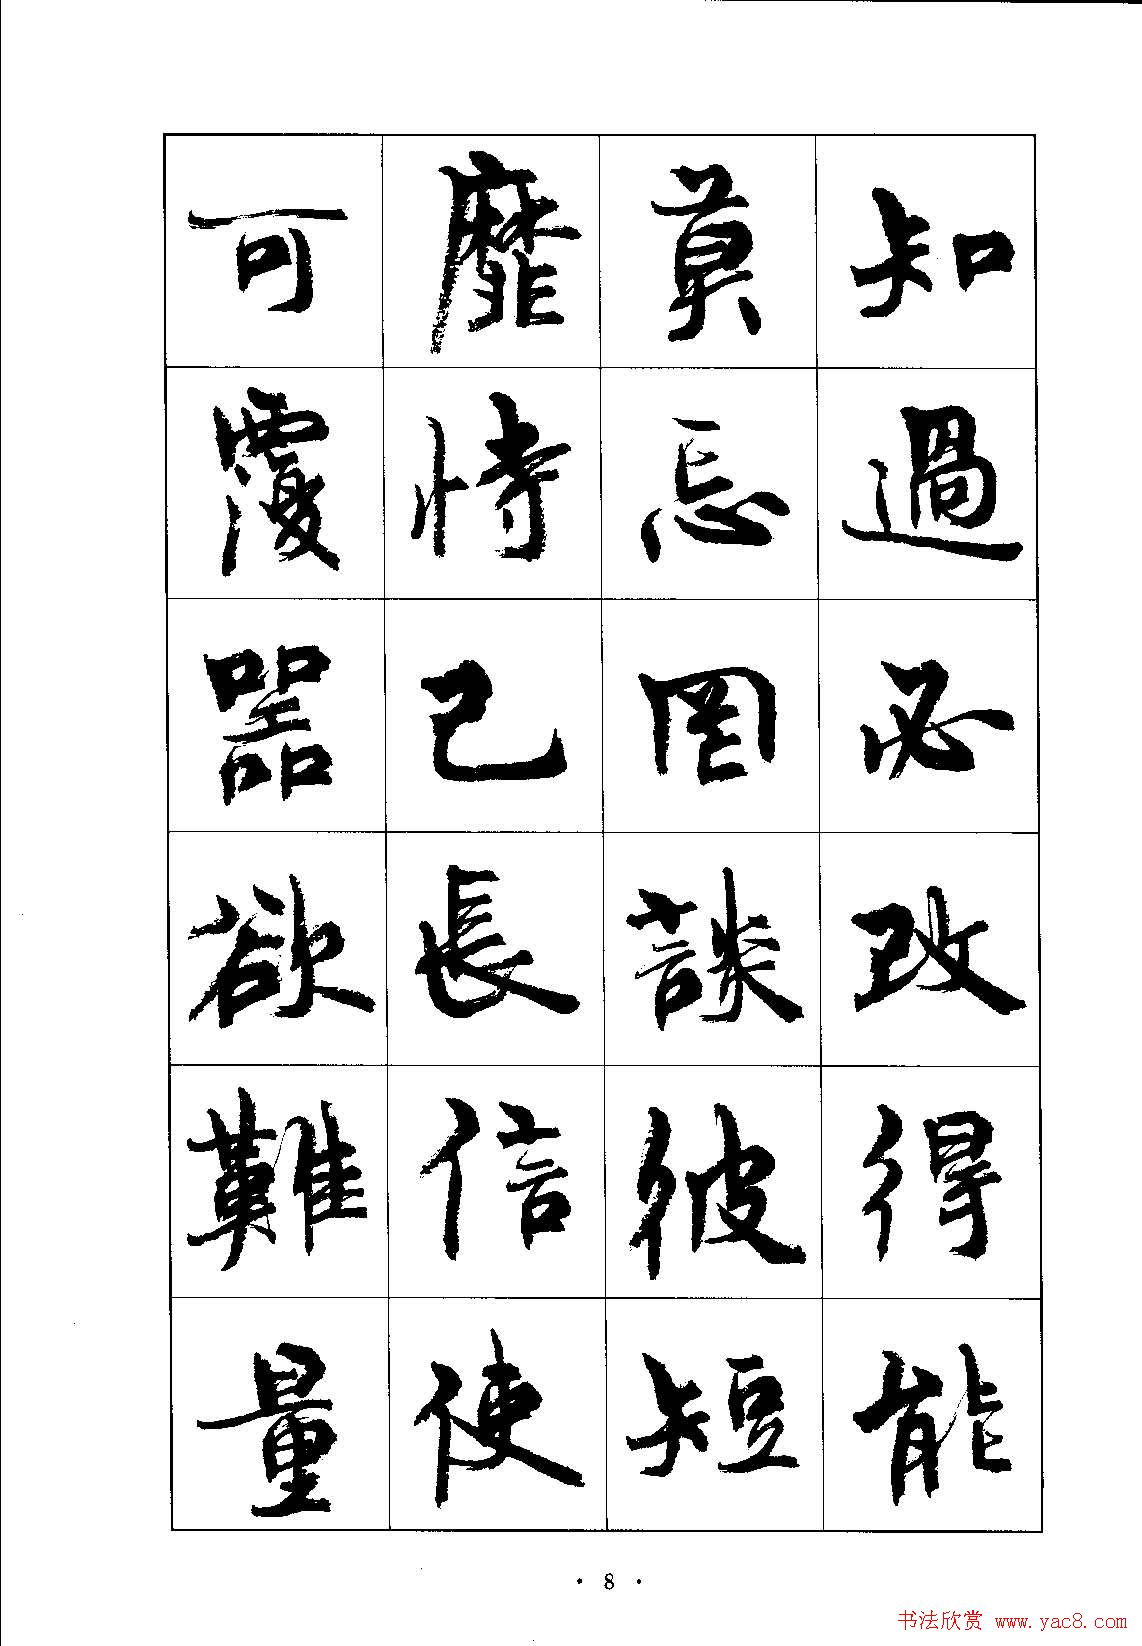 知過必改得能
莫忘罔談彼短
靡恃己長信使
可覆器欲難量
· 8 ·
书法欣赏 www.yac8.com